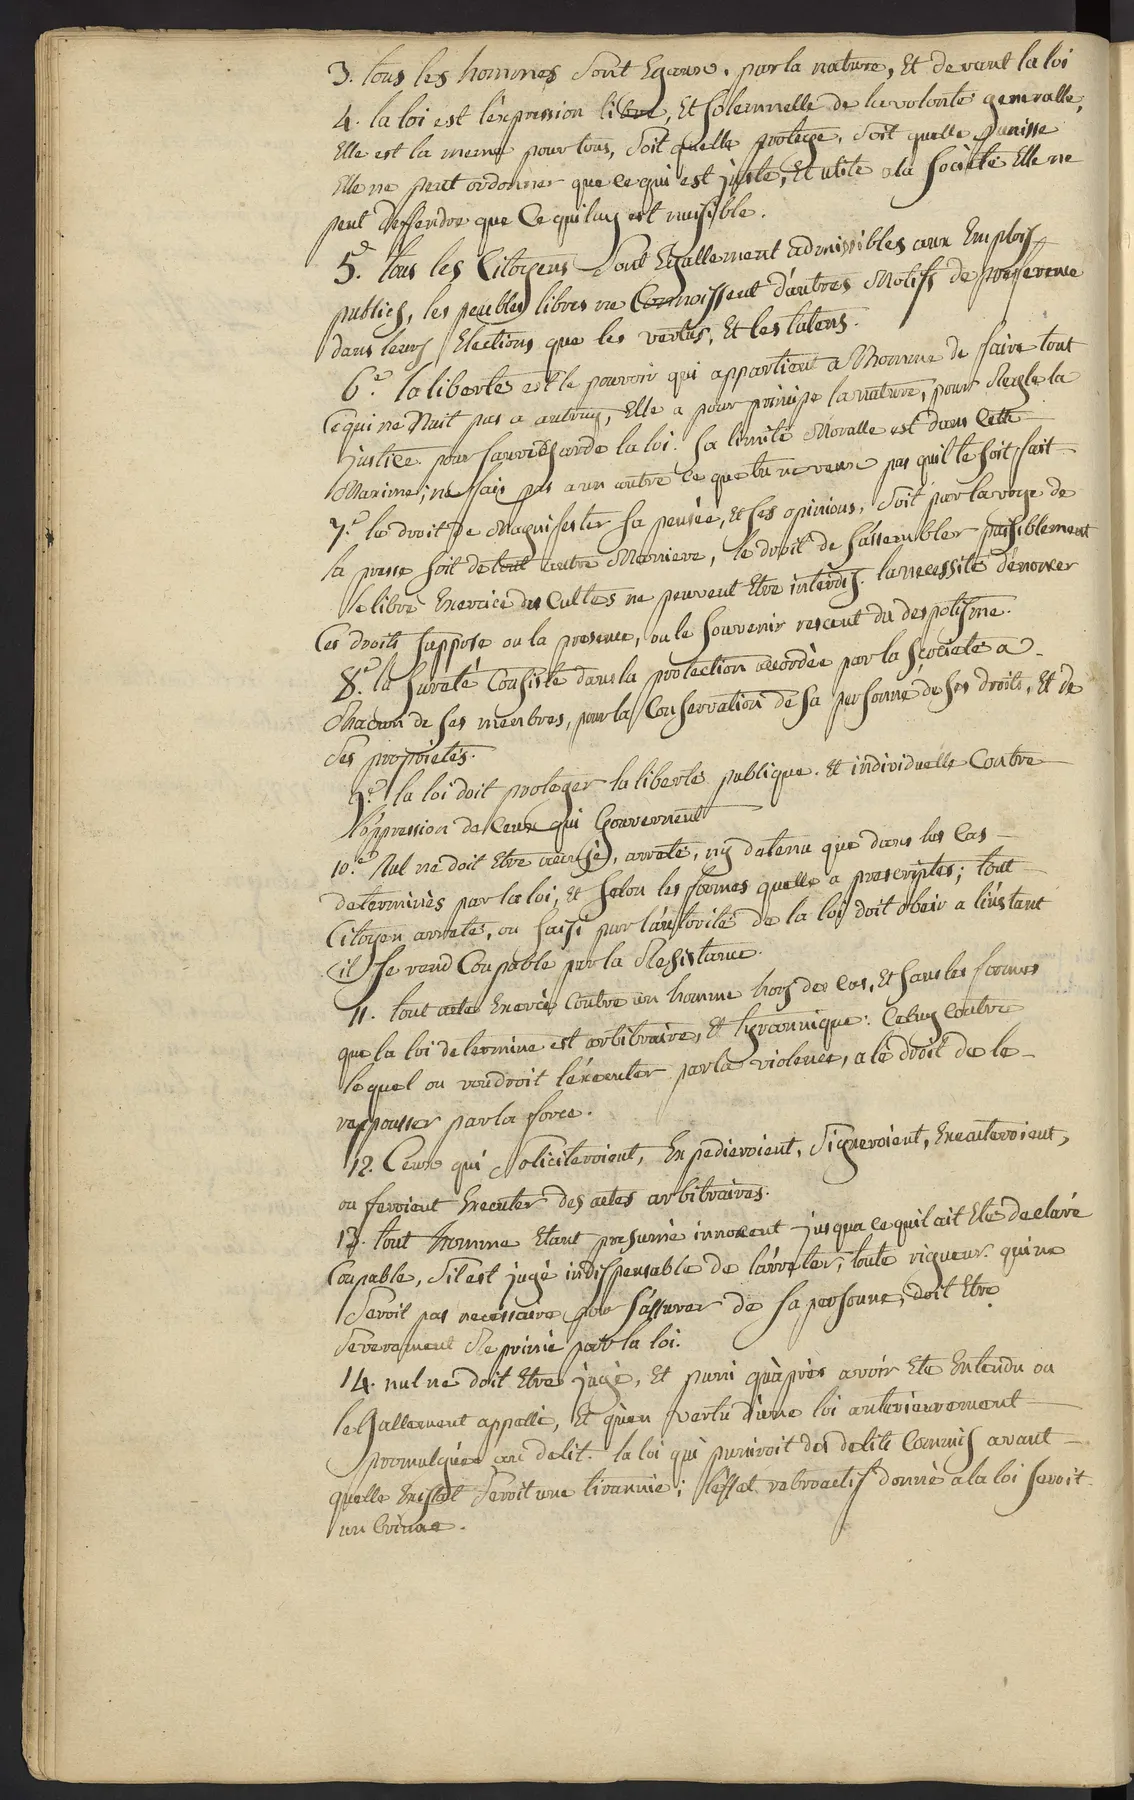 3. tous les hommes sont Egaux. par la nature, Et devant la loi
4. la loi est l'expression libre, Et solemnelle de la volonté generalle,
Elle est la meme pour tous, soit quelle protege, soit quelle punisse
Elle ne peut ordonner que ce qui est juste, Et utile a la société Elle ne
peut deffendre que Ce qui luy est nuisible.
5.e tous les Citoyens sont Egallement admissibles aux Emplois
publics, les peubles libres ne Connoissent d'autres Motifs de preferene
dans leurs Elections que les vertus, Et les talens.
6.e la liberté est le pouvoir qui appartient a lhomme de faire tout
Ce qui ne Nuit pas a autruy, Elle a pour principe la nature, pour Regle la
justice pour sauvegarde la loi. sa limite Moralle est dans Cette
Maxime; ne fais pas a un autre Ce que tu ne veux pas quil te soit fait
7.e le droit de Magnifester sa pensée, Et ses opinions, soit par la voye de
la presse soit de tout autre Maniere, le droit de sassembler paisiblement
le libre Exercice des Cultes ne peuvent Etre interdis. la necessité dénoncer
Ces droits suppose ou la presence, ou le souvenir rescent du despotisme.
8.e la sureté Consiste dans la protection acordée par la societé a
Chacun de ses membres, pour la Conservation de sa personne de ses droits, Et de
ses propriétés.
9.e la loi doit proteger la liberté publique. Et individuelle Contre
l'oppression de Ceux qui Gouvernent
10.e Nul ne doit Etre accusé, arreté, ny detenu que dans les Cas
determinés par la loi, Et selon les formes quelle a prescriptes; tout
Citoyen arreté, ou saisi par l'autorité de la loi doit obeir a l'instant
(il) se rend Coupable par la Resistance.
11. tout acte Exercé Contre un homme hors des Cas, Et sans les formes
que la loi determine est arbitraire, Et tyrannique: Celuy Contre
lequel on voudroit l'executer par la violence, a le droit de le
rappousser par la force.
12. Ceux qui Soliciteroient, Expedieroient, Signeroient, Executeroient,
ou feroient Executer des actes arbitraires.
13. tout homme Etant presumé innocent jusqua ce quil ait Eté declaré
Coupable, s'il est jugé indispensable de l'arreter, toute rigueur. qui ne
seroit pas necessaire pour s'assurer de sa personne, doit Etre
severement Reprimé par la loi.
14. nul ne doit Etre jugé, Et puni qu'après avoir Eté Entendu ou
leGallement appellé, Et qu'en vertu d'une loi anterieurement
promulguée au delit. la loi qui puniroit des delits Commis avant
quelle Existat seroit une tirannie; l'effet retroactif donné a la loi seroit
un Crime.